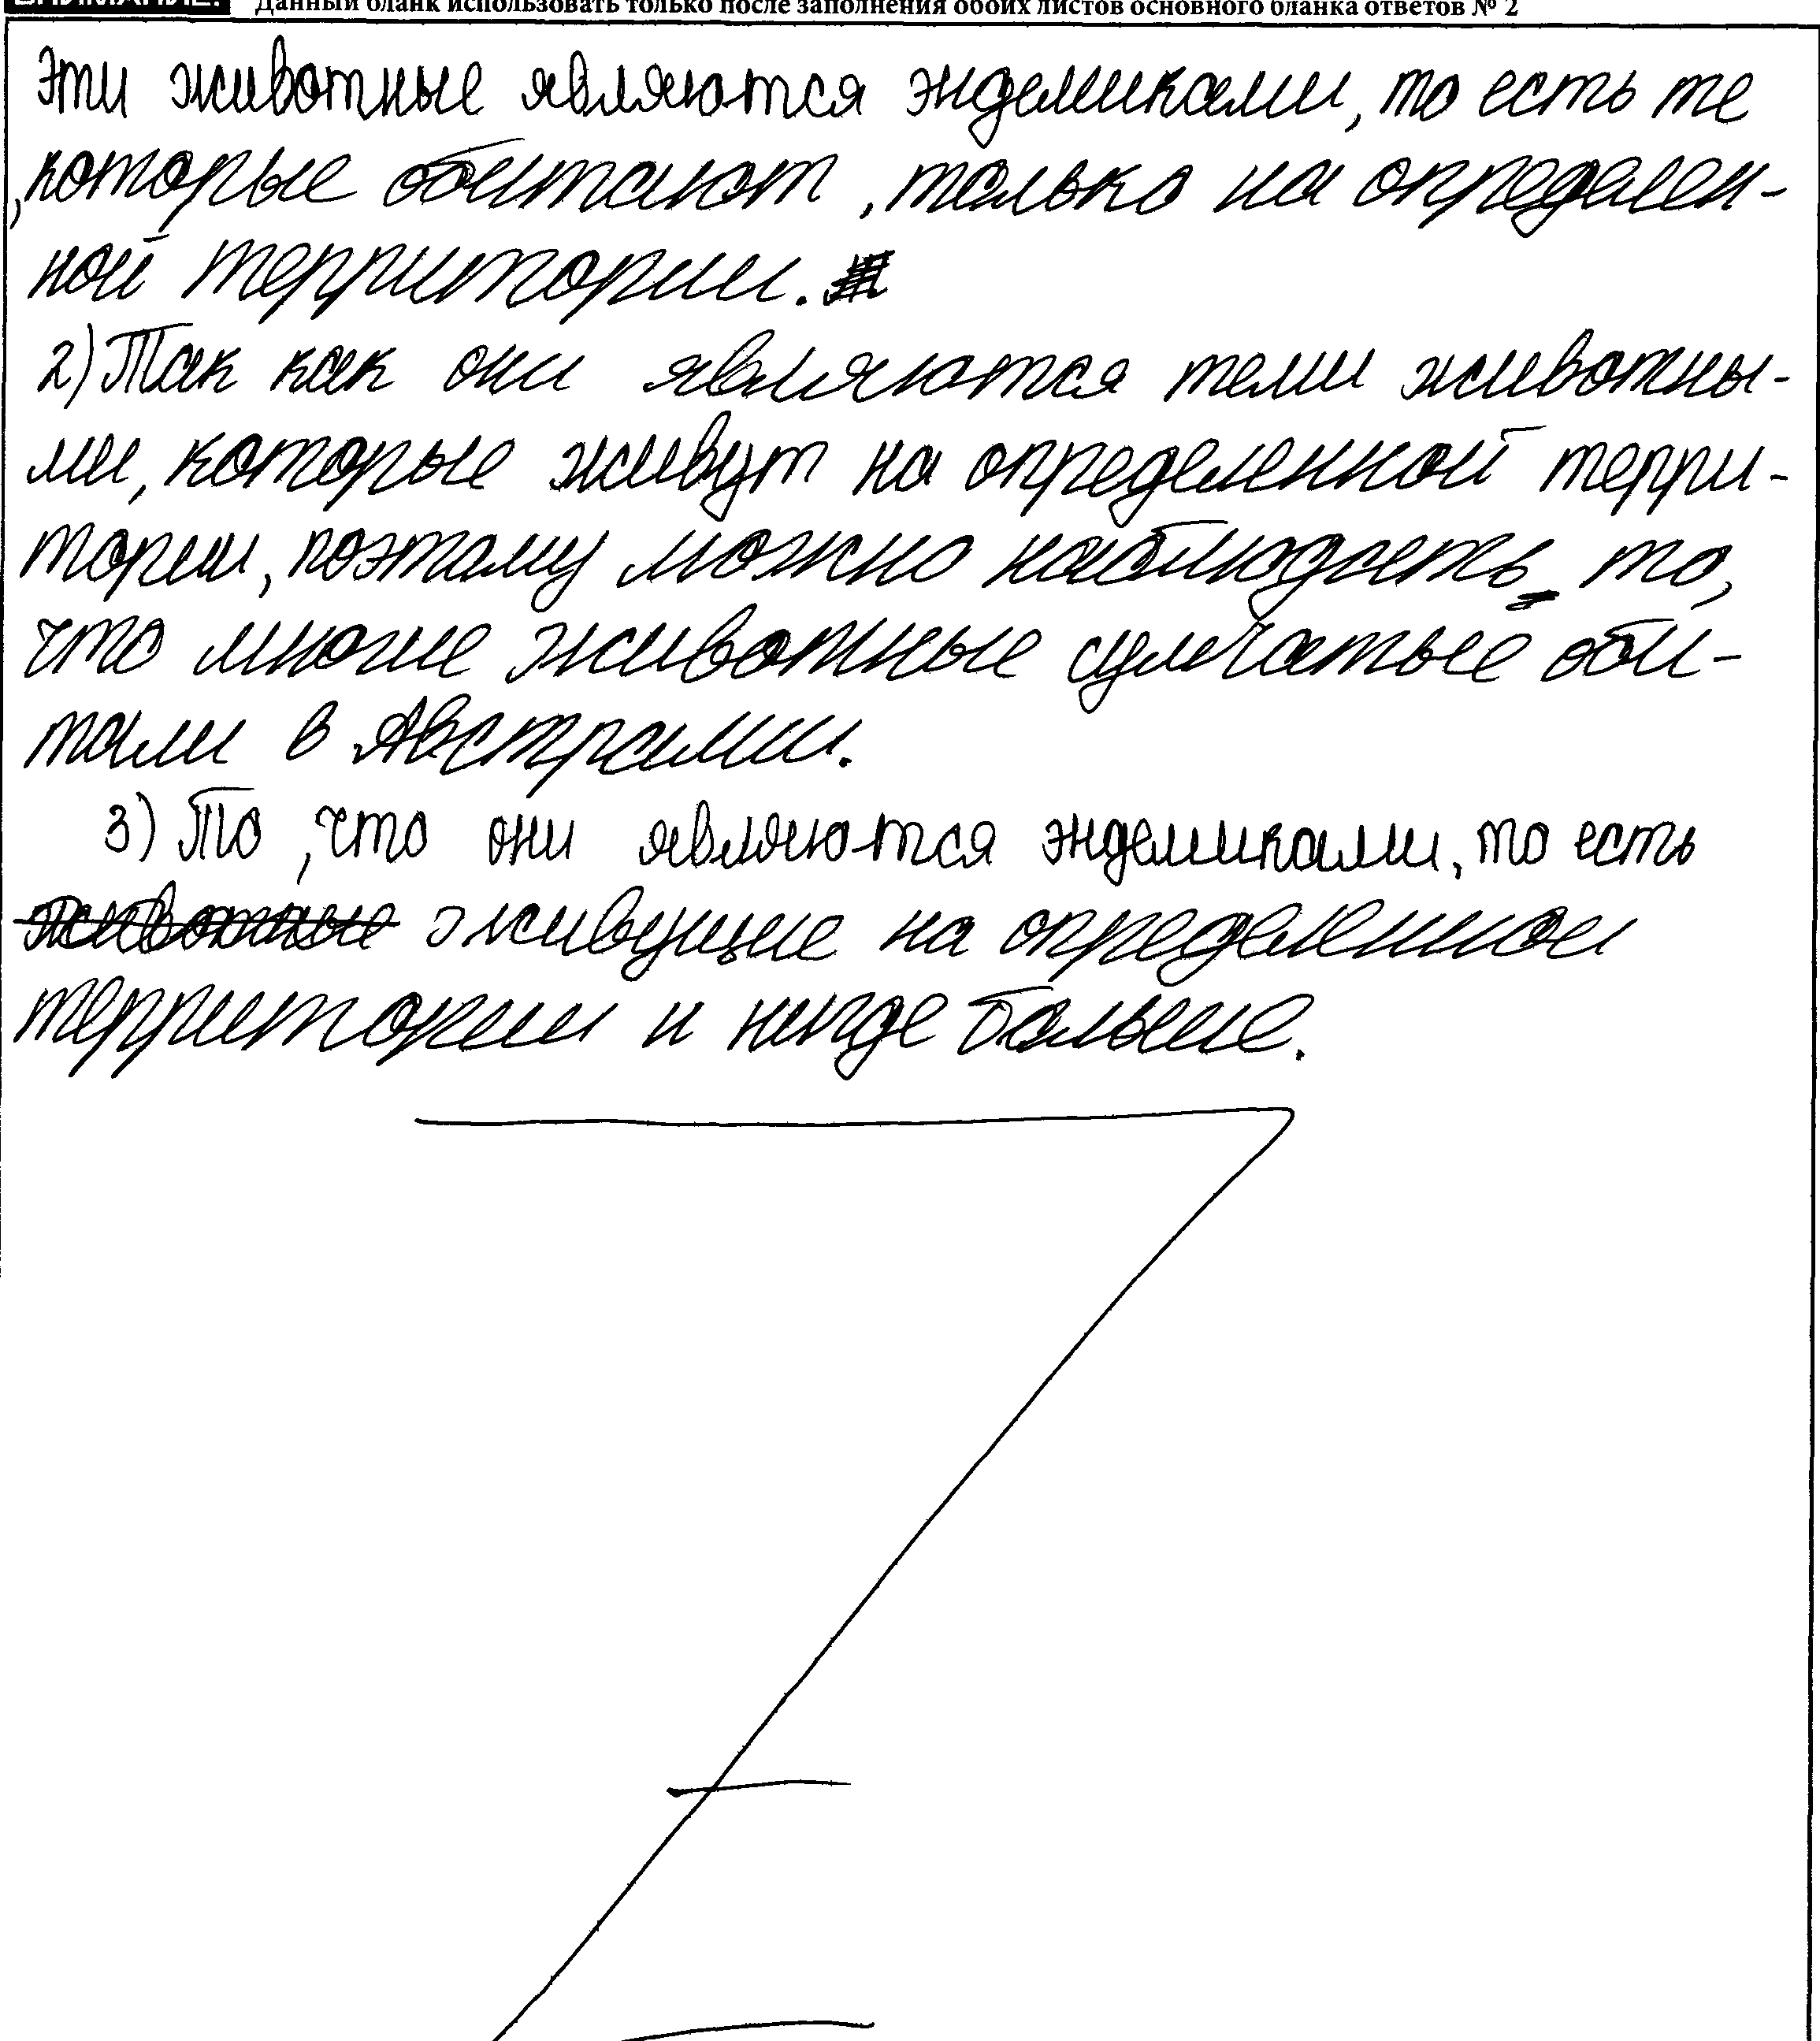 ВНИМАНИЕ! Данный бланк использовать только после заполнения обоих листов основного бланка ответов № 2
эти животные являются эндемиками, то есть те
,которые обитают, только на определен-
ной территории.
2) Так как они являются теми животны-
ми, которые живут на определенной терри-
тории, поэтому можно наблюдать то,
что многие животные сумчатые оби-
тали в Австралии.
3) То, что они являются эндемиками, то есть
животные живущие на определенной
территории и нигде больше.